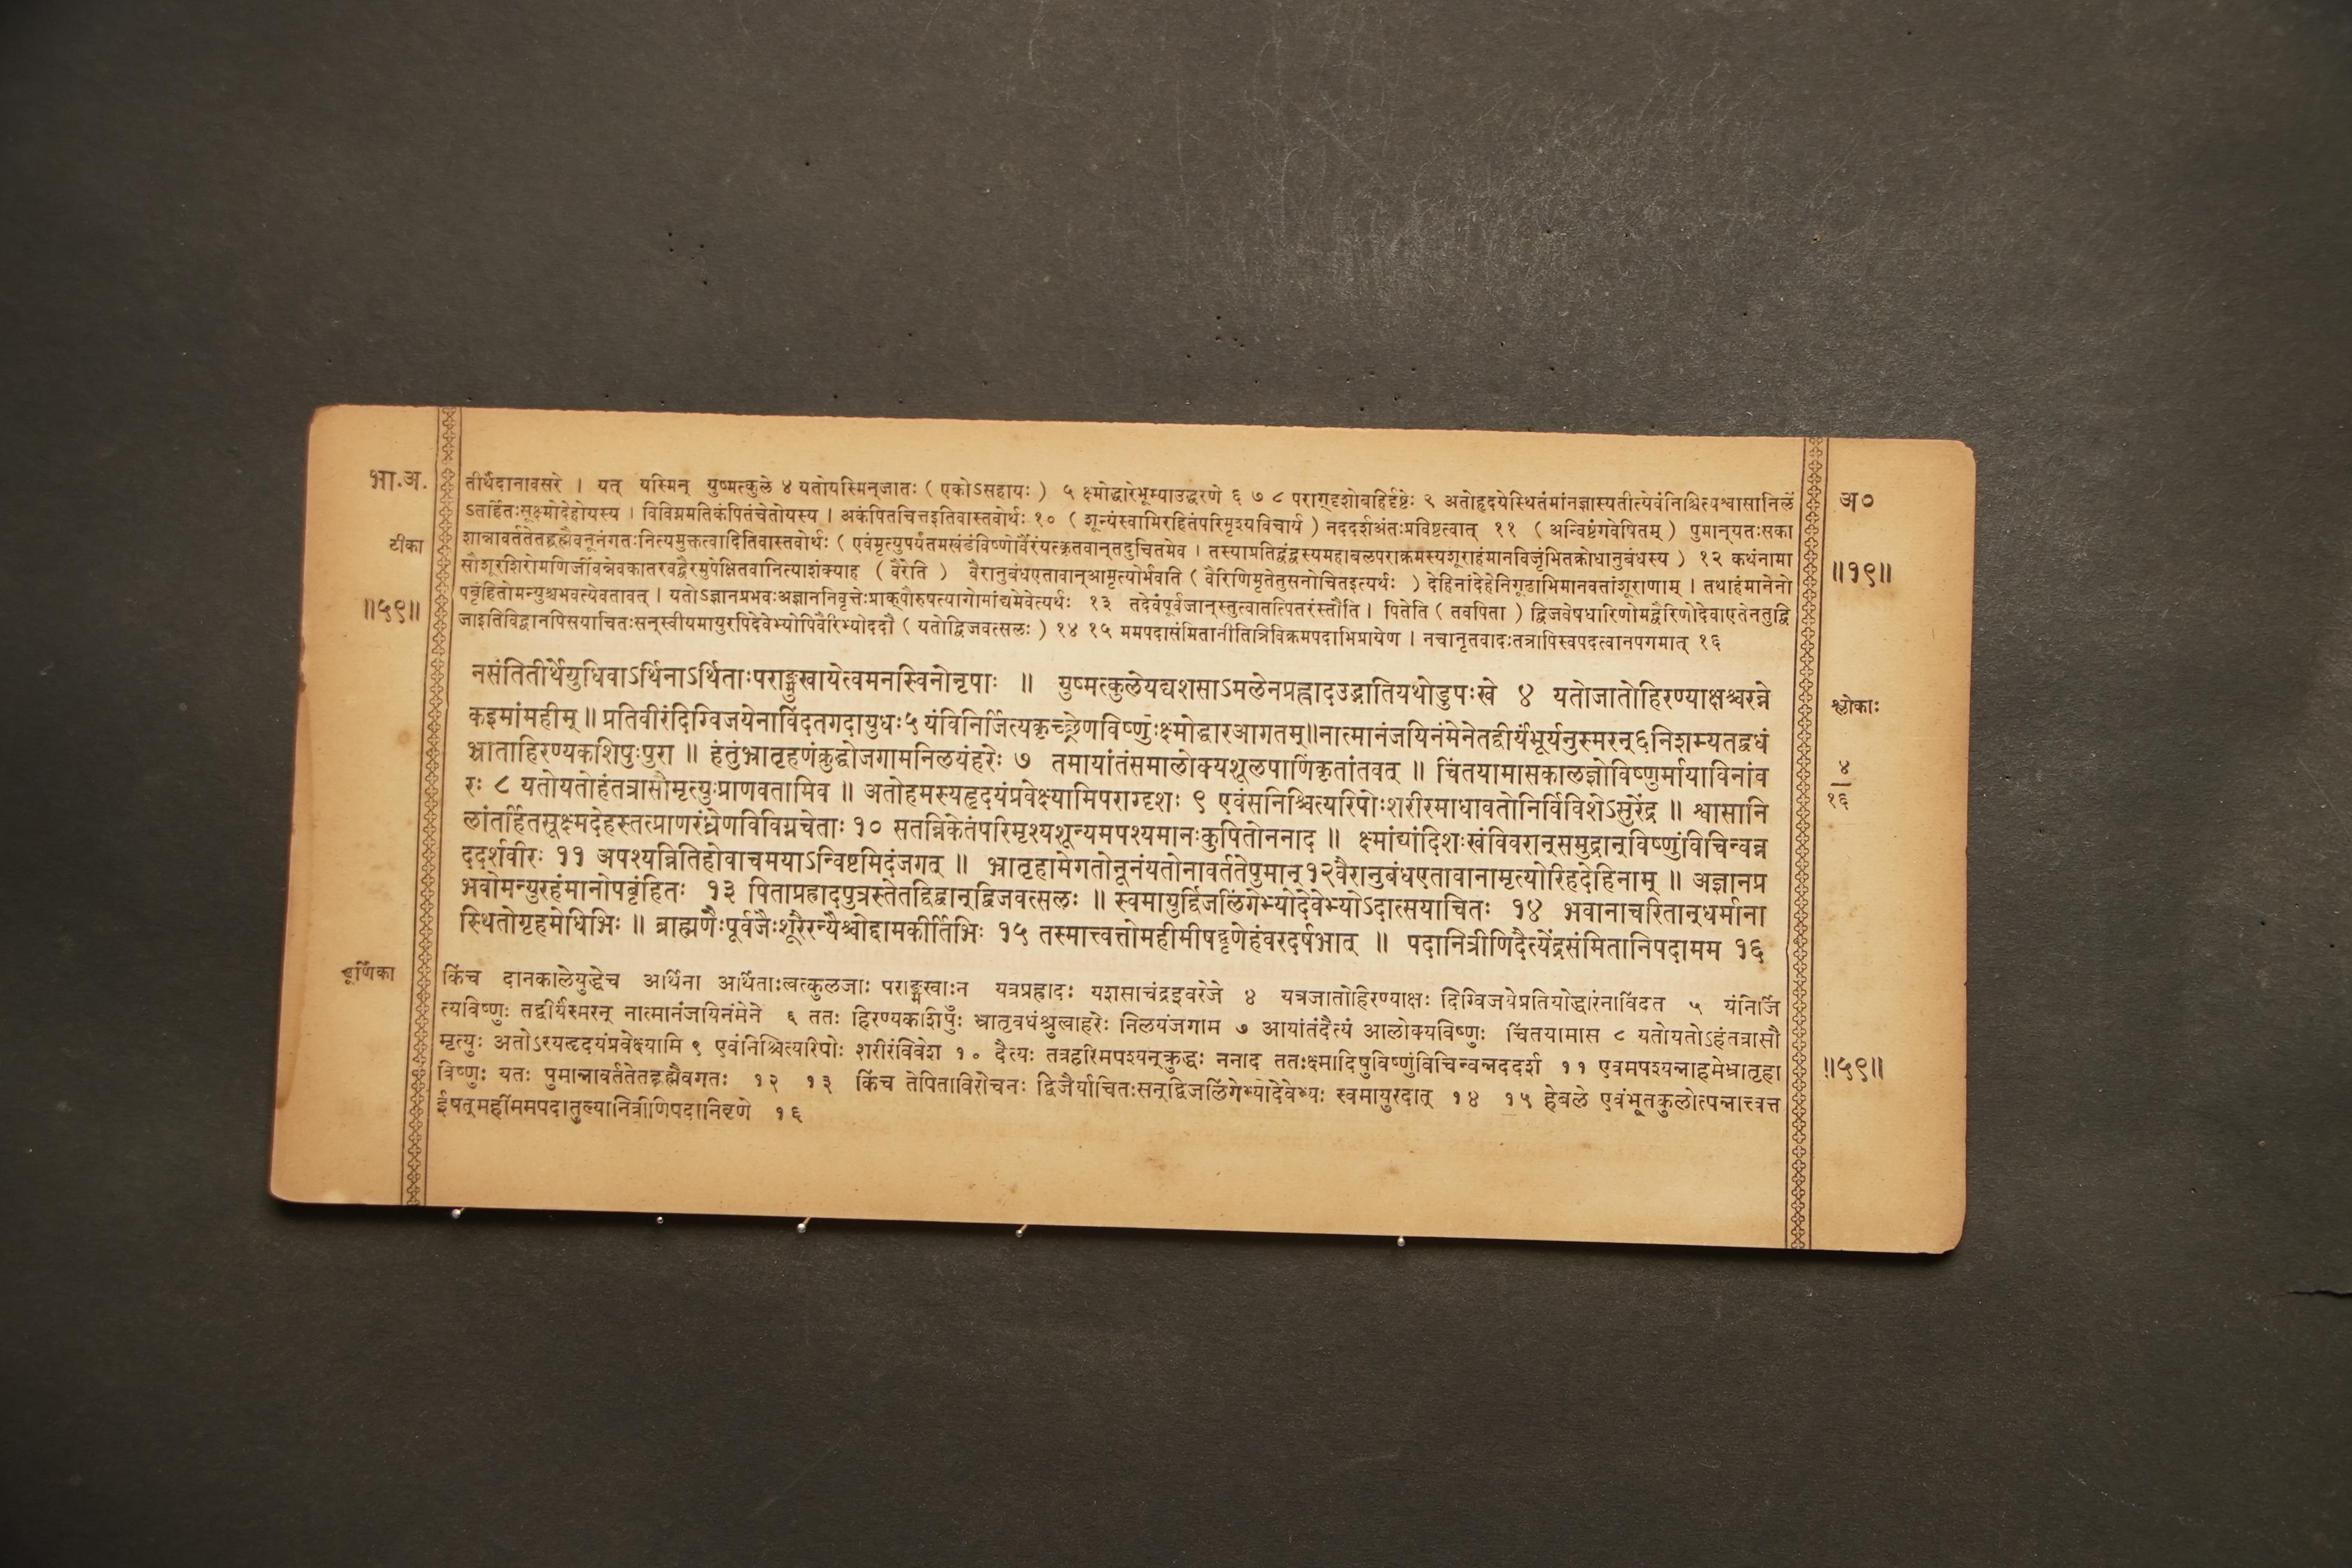 भा.अ.
टीका
॥५९॥
तीर्थेदानावसरे । यत् यस्मिन् युष्मत्कुले ४ यतोयस्मिन्जातः ( एकोऽसहायः ) ५ क्ष्मोद्धारेभूम्याउद्धरणे ६ ७ ८ पराग्दृशोबहिर्दृष्टेः ९ अतोहृदयेस्थितंमांनज्ञास्यतीत्येवंनिश्चित्यश्वासानिलें
ऽतर्हितःसूक्ष्मोदेहोयस्य । विविग्नमतिकंपितंचेतोयस्य । अकंपितचित्तइतिवास्तवोर्थः १० ( शून्यंस्वामिरहितंपरिमृश्यविचार्य ) नददर्शअंतःप्रविष्टत्वात् ११ ( अन्विष्टंगवेषितम् ) पुमान्यतःसका
शान्नावर्ततेतद्ब्रह्मैवनूनंगतःनित्यमुक्तत्वादितिवास्तवोर्थः ( एवंमृत्युपर्यंतमखंडंविष्णोर्वैरंयत्कृतवान्तदुचितमेव । तस्याप्रतिद्वंद्वस्यमहाबलपराक्रमस्यशूराहंमानविजृंभितक्रोधानुबंधस्य ) १२ कथंनामा
सौशूरशिरोमणिर्जीवन्नेवकातरवद्वैरमुपेक्षितवानित्याशंक्याह ( वैरेति ) वैरानुबंधएतावान्आमृत्योर्भवति ( वैरिणिमृतेतुसनोचितइत्यर्थः ) देहिनांदेहेनिगूढाभिमानवतांशूराणाम् । तथाहंमानेनो
पबृंहितोमन्युश्चभवत्येवतावत् । यतोऽज्ञानप्रभवःअज्ञाननिवृत्तेःप्राक्पौरुषत्यागोमांद्यमेवेत्यर्थः १३ तदेवंपूर्वजान्स्तुत्वातत्पितरंस्तौति । पितेति ( तवपिता ) द्विजवेषधारिणोमद्वैरिणोदेवाएतेनतुद्वि
जाइतिविद्वानपिसयाचितःसन्स्वीयमायुरपिदेवेभ्योपिवैरिभ्योददौ ( यतोद्विजवत्सलः ) १४ १५ ममपदासंमितानीतित्रिविक्रमपदाभिप्रायेण । नचानृतवादःतत्रापिस्वपदत्वानपगमात् १६
नसंतितीर्थेयुधिवाऽर्थिनाऽर्थिताःपराङ्मुखायेत्वमनस्विनोनृपाः ॥ युष्मत्कुलेयद्यशसाऽमलेनप्रह्लादउद्भातियथोडुपःखे ४ यतोजातोहिरण्याक्षश्चरन्ने
कइमांमहीम् ॥ प्रतिवीरंदिग्विजयेनाविंदतगदायुधः५ यंविनिर्जित्यकृच्छ्रेणविष्णुःक्ष्मोद्धारआगतम्॥नात्मानंजयिनंमेनेतद्वीर्यंभूर्यनुस्मरन्६निशम्यतद्वधं
भ्राताहिरण्यकशिपुःपुरा ॥ हंतुंभ्रातृहणंक्रुद्धोजगामनिलयंहरेः ७ तमायांतंसमालोक्यशूलपाणिंकृतांतवत् ॥ चिंतयामासकालज्ञोविष्णुर्मायाविनांव
रः ८ यतोयतोहंतत्रासौमृत्युःप्राणवतामिव ॥ अतोहमस्यहृदयंप्रवेक्ष्यामिपराग्दृशः ९ एवंसनिश्चित्यरिपोःशरीरमाधावतोनिर्विविशेऽसुरेंद्र ॥ श्वासानि
लांतर्हितसूक्ष्मदेहस्तत्प्राणरंध्रेणविविग्नचेताः १० सतन्निकेतंपरिमृश्यशून्यमपश्यमानःकुपितोननाद ॥ क्ष्मांद्यांदिशःखंविवरान्समुद्रान्विष्णुंविचिन्वन्न
ददर्शवीरः ११ अपश्यन्नितिहोवाचमयाऽन्विष्टमिदंजगत् ॥ भ्रातृहामेगतोनूनंयतोनावर्ततेपुमान्१२वैरानुबंधएतावानामृत्योरिहदेहिनाम् ॥ अज्ञानप्र
भवोमन्युरहंमानोपबृंहितः १३ पिताप्रह्रादपुत्रस्तेतद्विद्वान्द्विजवत्सलः ॥ स्वमायुर्द्विजलिंगेभ्योदेवेभ्योऽदात्सयाचितः १४ भवानाचरितान्धर्माना
स्थितोगृहमेधिभिः ॥ ब्राह्मणैःपूर्वजैःशूरैरन्यैश्चोद्दामकीर्तिभिः १५ तस्मात्त्वत्तोमहीमीषद्वृणेहंवरदर्षभात् ॥ पदानित्रीणिदैत्येंद्रसंमितानिपदामम १६
चूर्णिका
किंच दानकालेयुद्धेच अर्थिना अर्थिताःत्वत्कुलजाः पराङ्मखाःन यत्रप्रह्रादः यशसाचंद्रइवरेजे ४ यत्रजातोहिरण्याक्षः दिग्विजयेप्रतियोद्धारंनाविंदत ५ यंनिर्जि
त्यविष्णुः तद्वीर्यंस्मरन् नात्मानंजयिनंमेने ६ ततः हिरण्यकशिपुः भ्रातृवधंश्रुत्वाहरेः निलयंजगाम ७ आयांतंदैत्यं आलोक्यविष्णुः चिंतयामास ८ यतोयतोऽहंतत्रासौ
मृत्युः अतोऽस्यहृदयंप्रवेक्ष्यामि ९ एवंनिश्चित्यरिपोः शरीरंविवेश १० दैत्यः तत्रहरिमपश्यन्क्रुद्धः ननाद ततःक्ष्मादिषुविष्णुंविचिन्वन्नददर्श ११ एवमपश्यन्नाहमेभ्रातृहा
विष्णुः यतः पुमान्नावर्ततेतद्ब्रह्मैवगतः १२ १३ किंच तेपिताविरोचनः द्विजैर्याचितःसन्द्विजलिंगेभ्योदेवेभ्यः स्वमायुरदात् १४ १५ हेबले एवंभूतकुलोत्पन्नात्त्वत्त
ईषत्महींममपदातुल्यानित्रीणिपदानिवृणे १६
अ०
॥१९॥
श्लोकाः
४
१६
॥५९॥